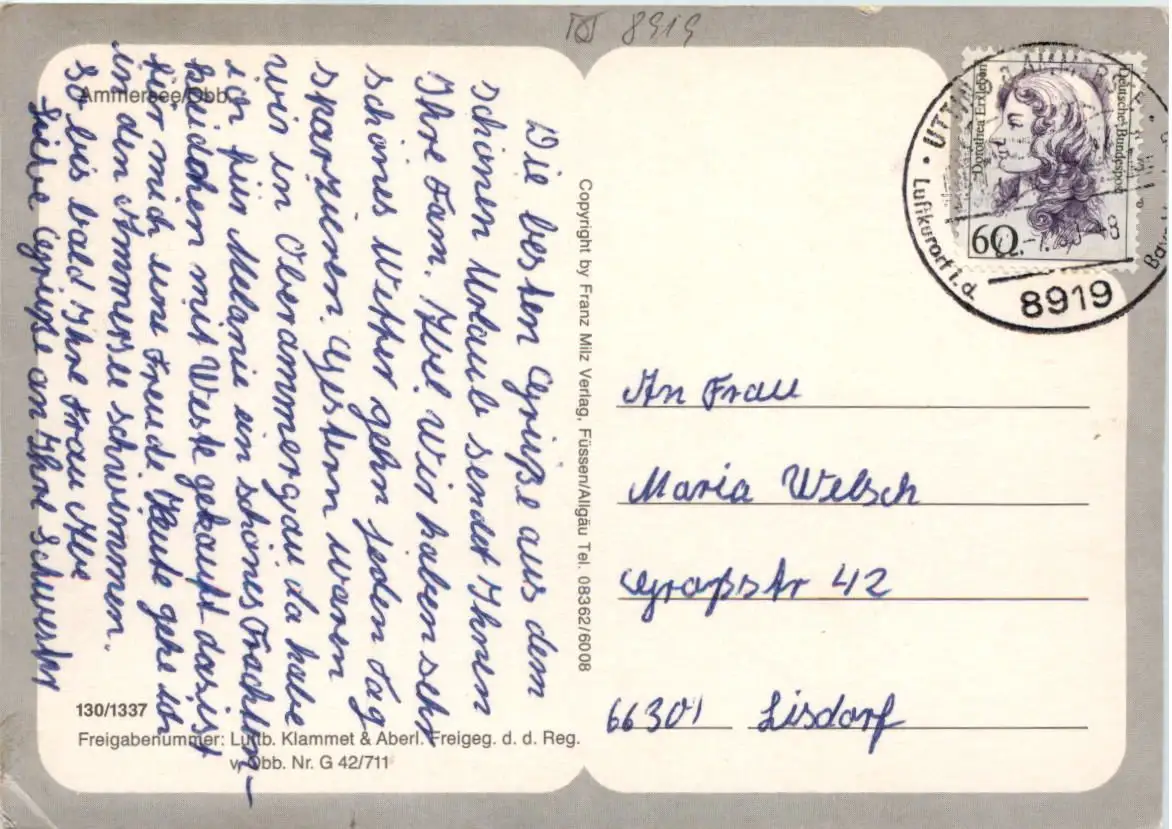 8919
Ammersee/Obb.
Die besten Grüße aus dem
schönen Urlaub sendet Ihnen
Ihre Fam. Ibel. Wir haben sehr
schönes Wetter gehn jeden Tag
spazieren. Gestern waren
wir in Oberammergau da habe
ich für Melanie ein schönes Trachten-
kleidchen mit Weste gekauft das ist
für mich eine Freude. Heute gehe ich
in den Ammersee schwimmen.
So bis bald Ihre Frau Ibe
Liebe Grüße an Ihre Schwester
130/1337
Freigabenummer: Luftb. Klammet & Aberl. Freigeg. d. d. Reg.
v. Obb. Nr. G 42/711
Copyright by Franz Milz Verlag, Füssen/Allgäu Tel. 08362/6008
Dorothea Erxleben
Deutsche Bundespost
60
AMMERSEE
Luftkurort i. d.
8919
An Frau
Maria Welsch
Großstr 42
66301 Lisdorf